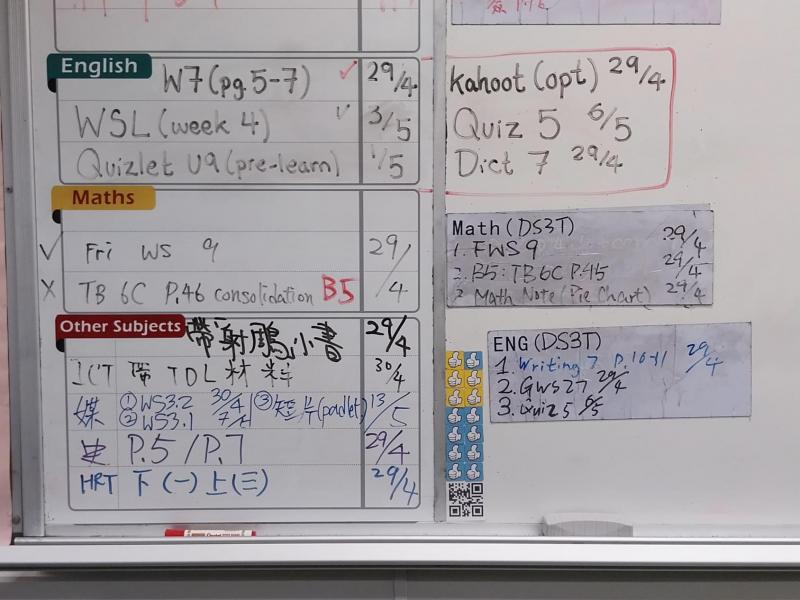 English
W7 (pg 5-7) 29/4
WSL (week 4) 3/5
Quizlet U9 (pre-learn) 1/5
Maths
Fri WS 9 29/4
TB 6C P.46 consolidation B5
Other Subjects
帶射鵰小書 29/4
ICT 帶 TDL 材料 30/4
媒 ① WS3.2 30/4 ③ 短片 (padlet) 13/5
② WS3.1
P.5 / P.7 29/4
HRT 下 (一) 上 (三) 29/4
Kahoot (opt) 29/4
Quiz 5 6/5
Dict 7 29/4
Math (DS3T)
1. FWS 9 29/4
2. B5: TB 6C P.45 29/4
Math Note (Pie Chart) 29/4
ENG (DS3T)
1. Writing 7 P.10-11 29/4
2. GWS 27 29/4
3. Quiz 5 6/5